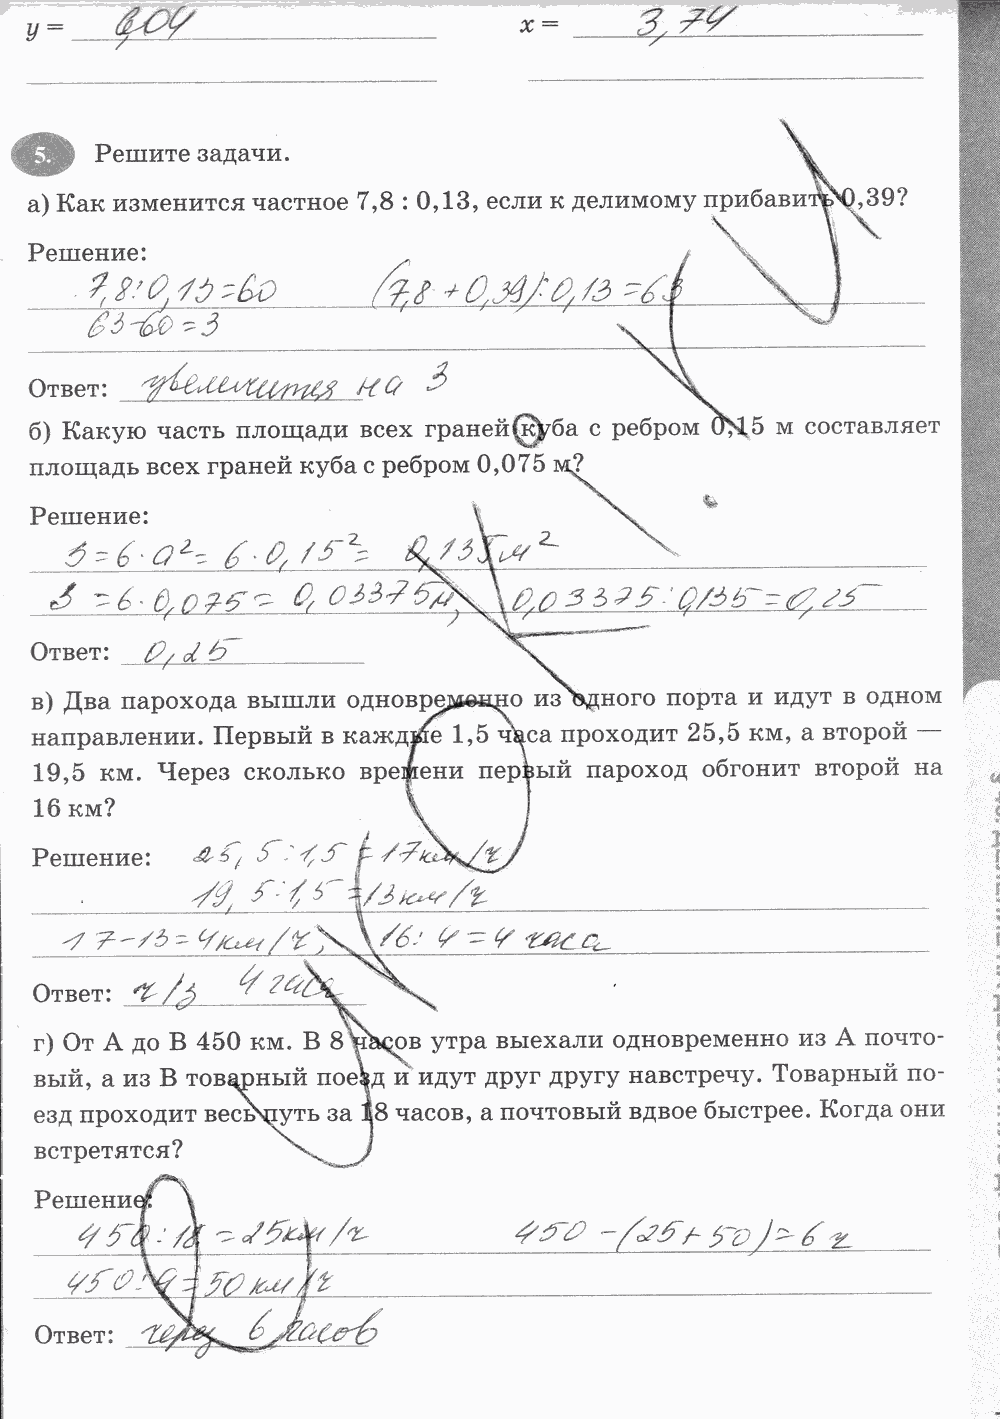 y = 6,04 x = 3,74
5. Решите задачи.
а) Как изменится частное 7,8 : 0,13, если к делимому прибавить 0,39?
Решение:
7,8:0,13=60 (7,8+0,39):0,13=63
63-60=3
Ответ: увеличится на 3
б) Какую часть площади всех граней куба с ребром 0,15 м составляет
площадь всех граней куба с ребром 0,075 м?
Решение:
S=6·a²= 6·0,15²= 0,135м²
S=6·0,075= 0,03375м, 0,03375:0,135=0,25
Ответ: 0,25
в) Два парохода вышли одновременно из одного порта и идут в одном
направлении. Первый в каждые 1,5 часа проходит 25,5 км, а второй —
19,5 км. Через сколько времени первый пароход обгонит второй на
16 км?
Решение: 25,5:1,5=17км/ч
19,5:1,5=13км/ч
17-13=4км/ч, 16:4=4 часа
Ответ: ч/з 4 часа
г) От А до В 450 км. В 8 часов утра выехали одновременно из А почто-
вый, а из В товарный поезд и идут друг другу навстречу. Товарный по-
езд проходит весь путь за 18 часов, а почтовый вдвое быстрее. Когда они
встретятся?
Решение:
450:18=25км/ч 450-(25+50)=6ч
450:9=50км/ч
Ответ: через 6 часов